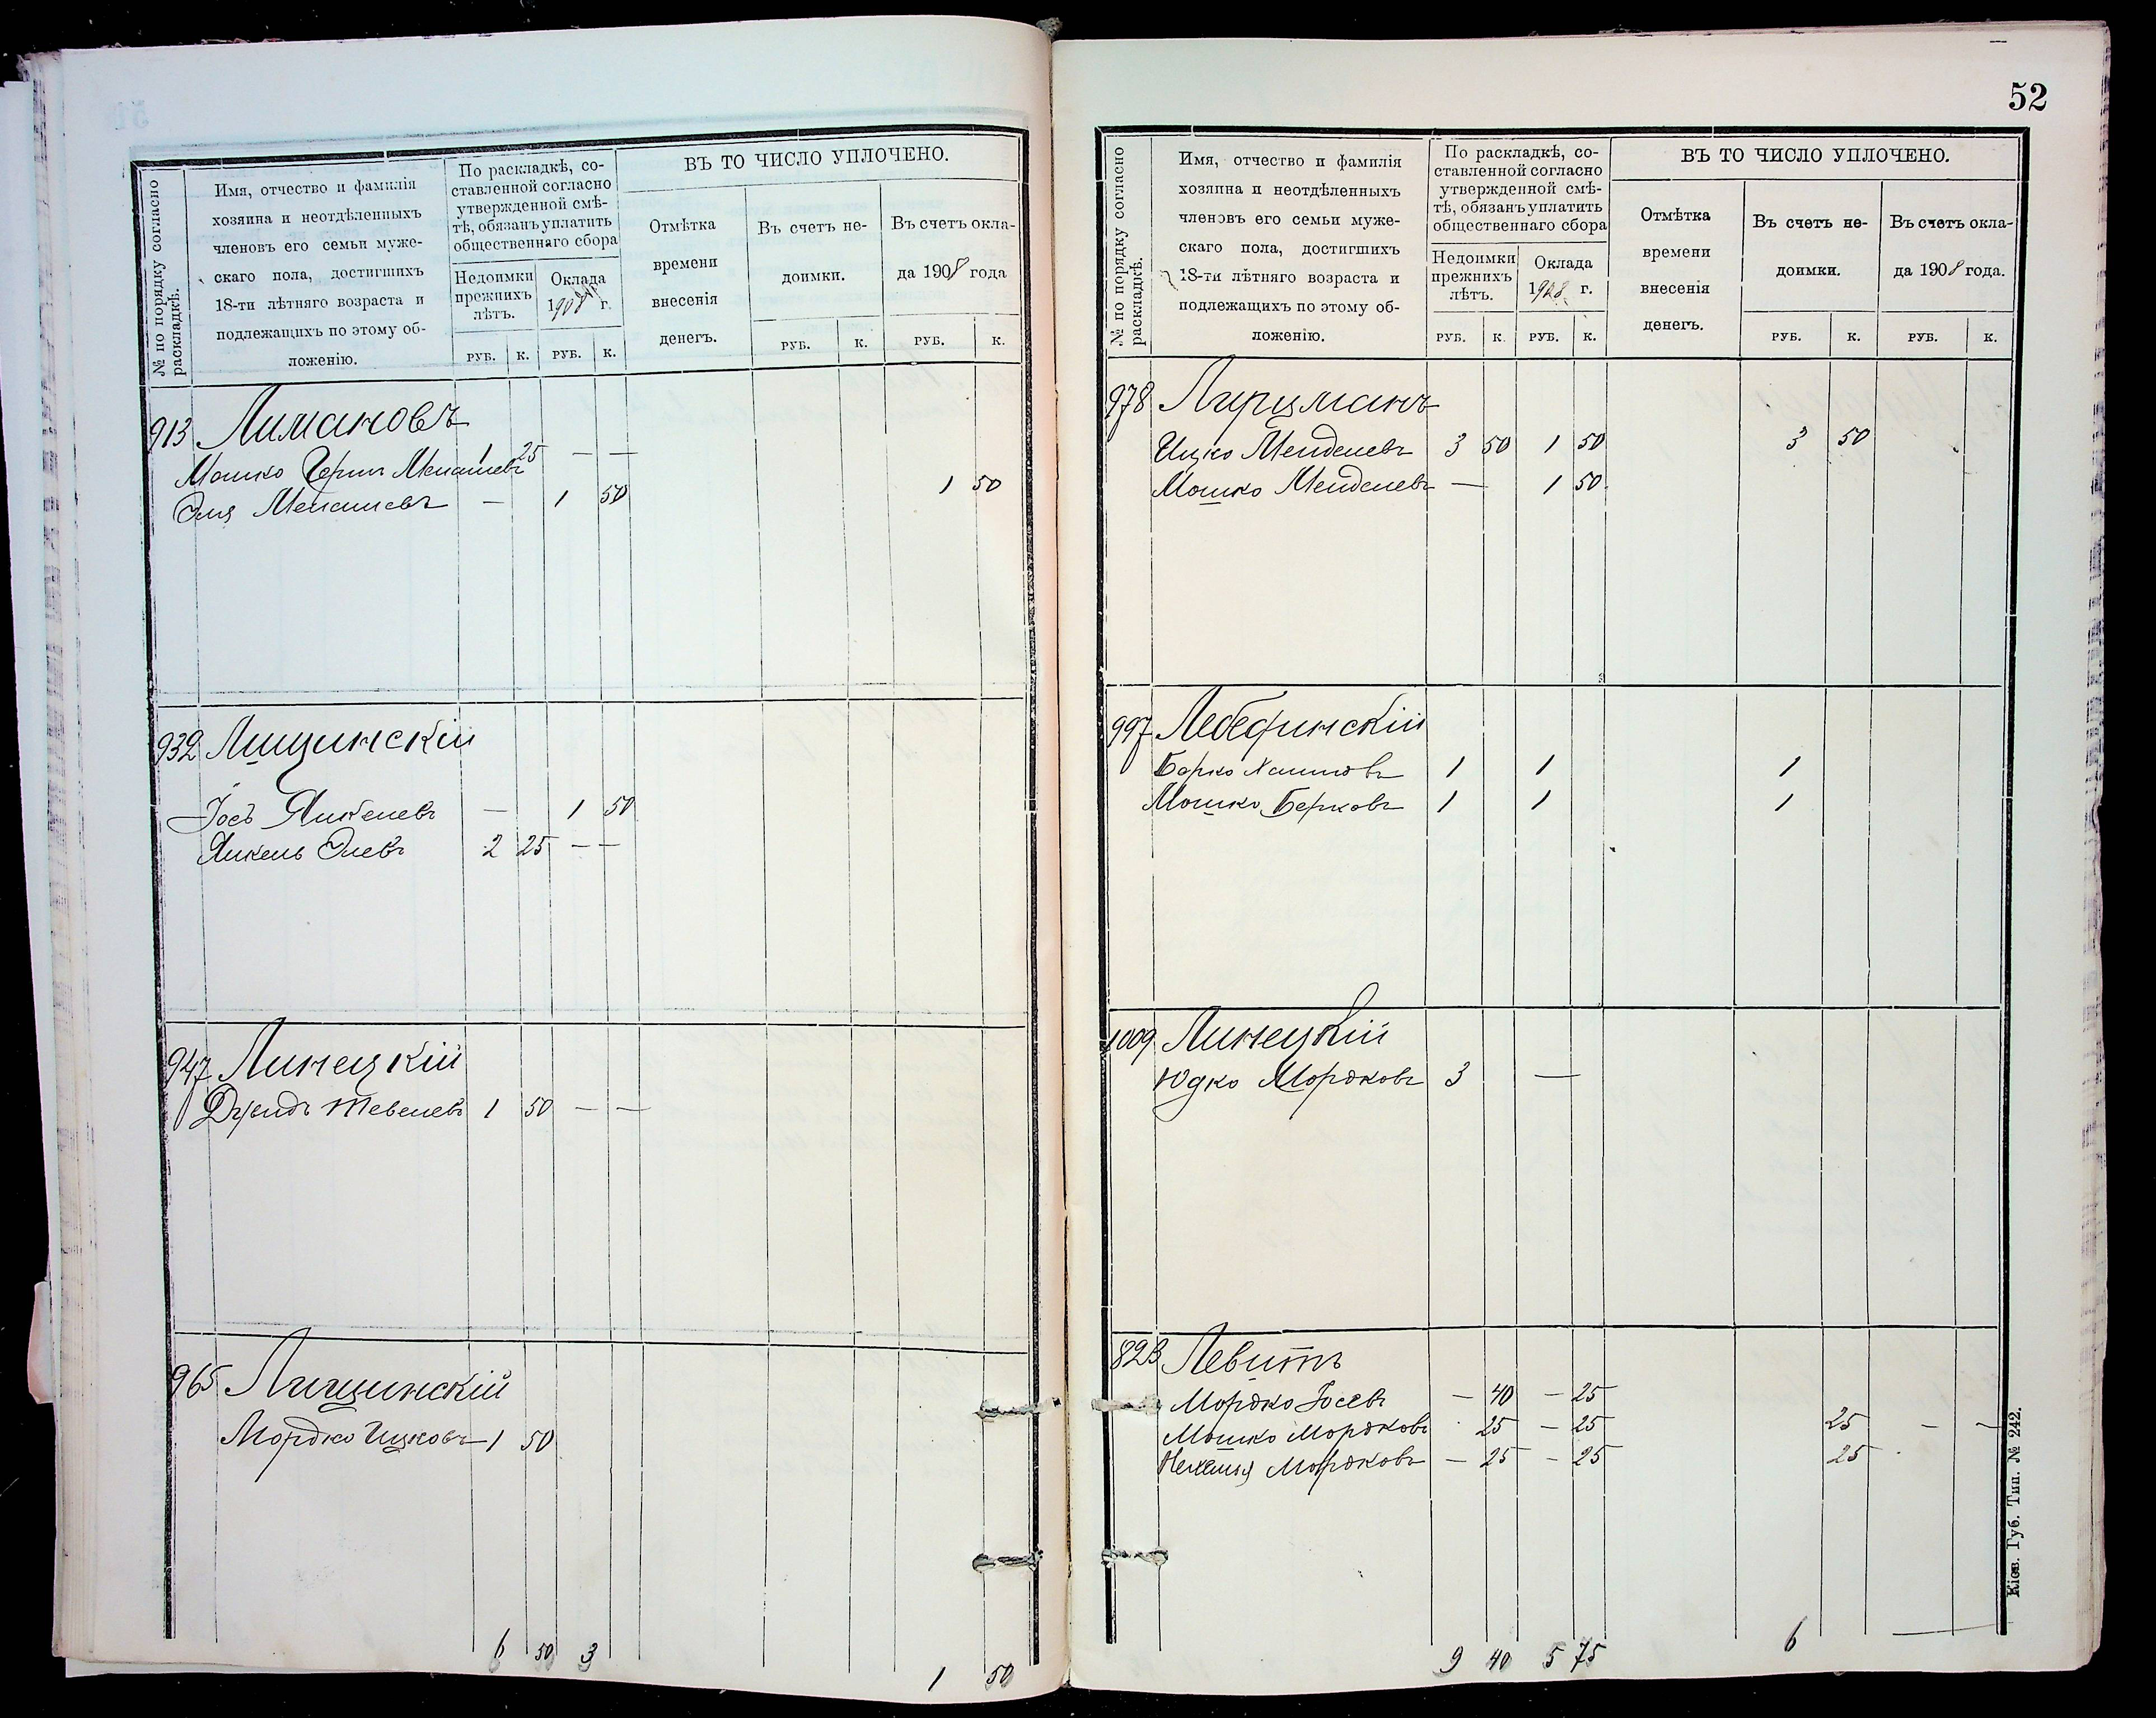 № по порядку согласно раскладкѣ.
Имя, отчество и фамилія
хозяина и неотдѣленныхъ
членовъ его семьи муже-
скаго пола, достигшихъ
18-ти лѣтняго возраста и
подлежащихъ по этому об-
ложенію.
По раскладкѣ, со-
ставленной согласно
утвержденной смѣ-
тѣ, обязанъ уплатить
общественнаго сбора
Недоимки
прежнихъ
лѣтъ.
Оклада
1908 г.
ВЪ ТО ЧИСЛО УПЛОЧЕНО.
Отмѣтка
времени
внесенія
денегъ.
Въ счетъ не-
доимки.
Въ счетъ окла-
да 1908 года
РУБ. К. РУБ. К. РУБ. К. РУБ. К.
913 Лимановъ
Мошко Герш Менашевъ 1 25 — —
Эля Менашевъ — 1 50 1 50
932 Лищинскій
Іось Янкелевъ — 1 50
Янкель Элевъ 2 25 — —
947 Линецкій
Дувидъ Тевелевъ 1 50 — —
965 Лищинскій
Мордко Ицковъ 1 50
6 50 3 1 50
52
№ по порядку согласно раскладкѣ.
Имя, отчество и фамилія
хозяина и неотдѣленныхъ
членовъ его семьи муже-
скаго пола, достигшихъ
18-ти лѣтняго возраста и
подлежащихъ по этому об-
ложенію.
По раскладкѣ, со-
ставленной согласно
утвержденной смѣ-
тѣ, обязанъ уплатить
общественнаго сбора
Недоимки
прежнихъ
лѣтъ.
Оклада
1908 г.
ВЪ ТО ЧИСЛО УПЛОЧЕНО.
Отмѣтка
времени
внесенія
денегъ.
Въ счетъ не-
доимки.
Въ счетъ окла-
да 1908 года.
РУБ. К. РУБ. К. РУБ. К. РУБ. К.
978 Лирцманъ
Ицко Менделевъ 3 50 1 50 3 50
Мошко Менделевъ — 1 50
997 Лебединскій
Берко Хаимовъ 1 1 1
Мошко Берковъ 1 1 1
1009 Линецкій
Юдко Мордковъ 3 —
823 Левитъ
Мордко Іосевъ — 40 — 25
Мошко Мордковъ 25 — 25 25 — —
Нехемія Мордковъ — 25 — 25 25
9 40 5 75 6
Кіев. Губ. Тип. № 242.